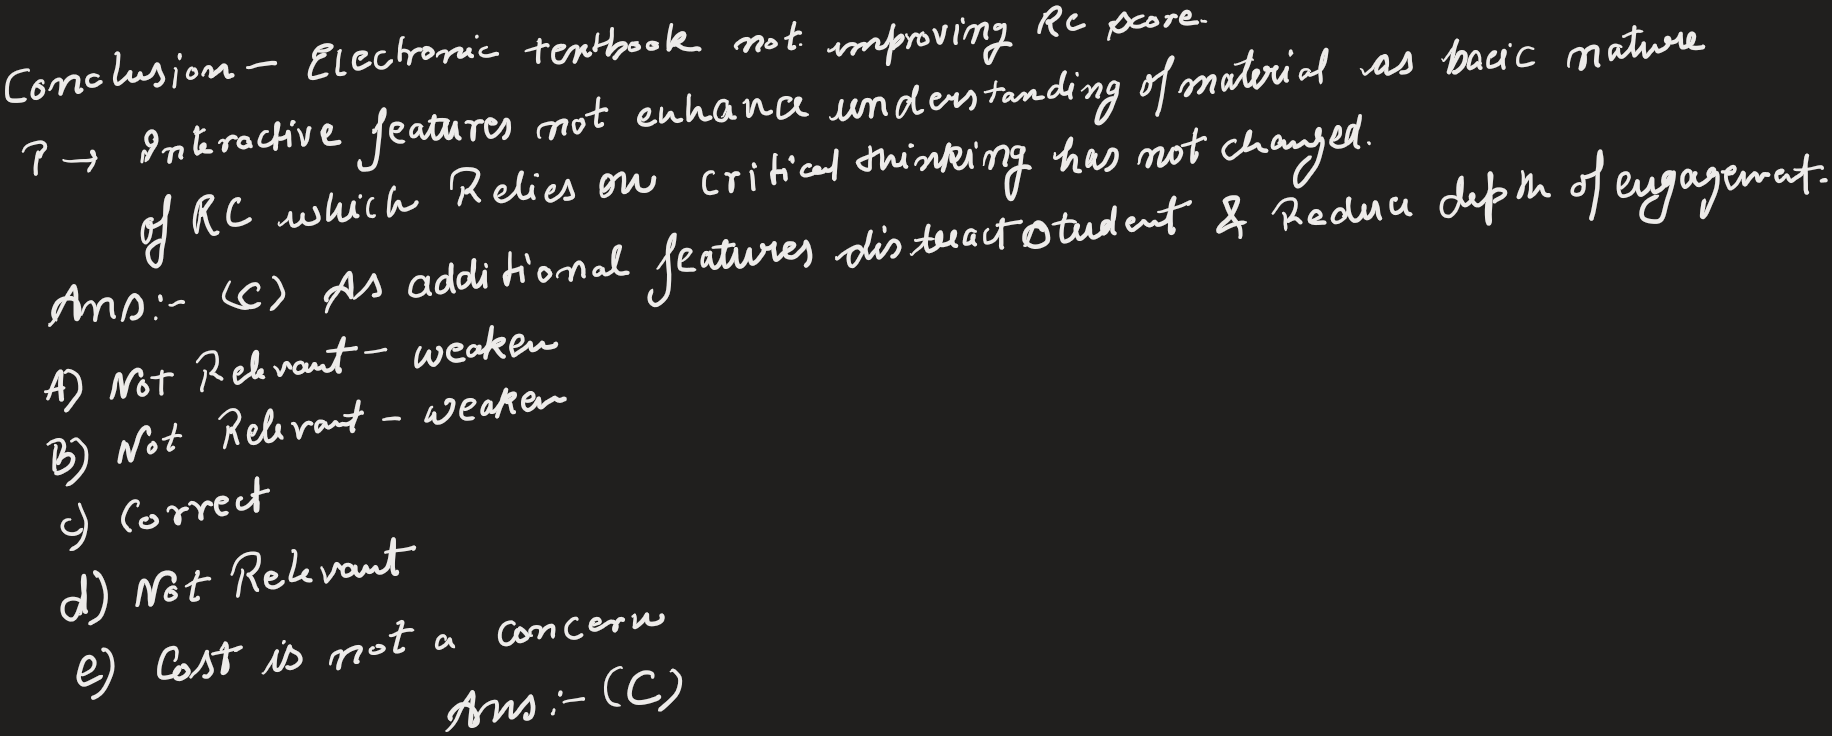 Conclusion - Electronic textbook not improving RC score.
P → Interactive features not enhance understanding of material as basic nature
of RC which Relies on critical thinking has not changed.
Ans:- (C) As additional features distract student & Reduce depth of engagement.
A) Not Relevant - weaken
B) Not Relevant - weaken
c) Correct
d) Not Relevant
e) Cost is not a concern
Ans :- (C)